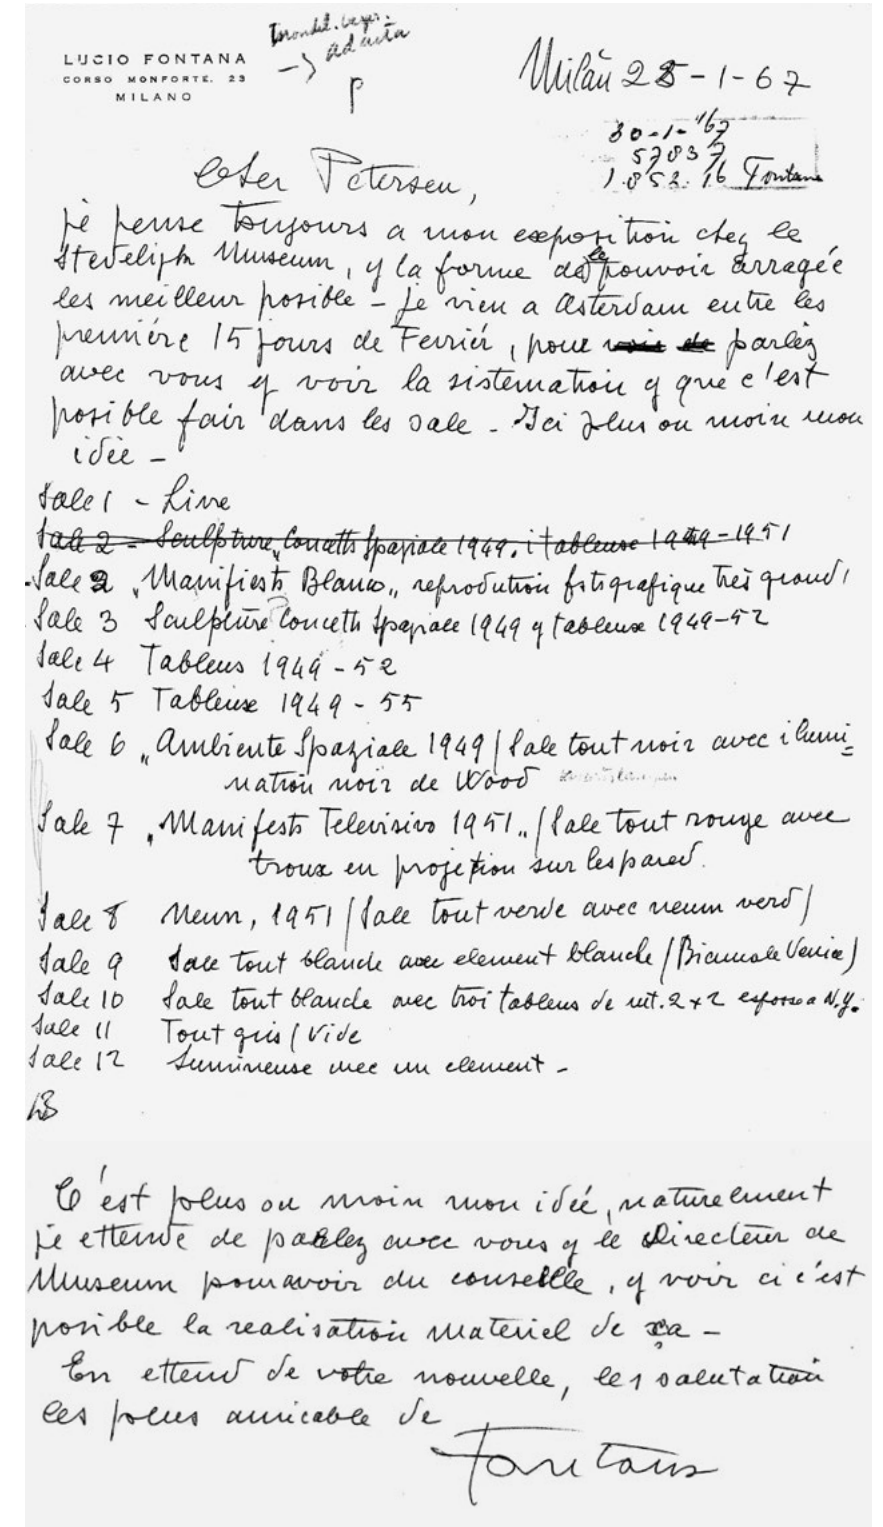 LUCIO FONTANA
CORSO MONFORTE. 23
MILANO
ad acta
P
Milân 25-1-67
30-1-'67
57837
1.852.16 Fontana
Cher Petersen,
je pense toujours a mon exposition chez le
Stedeligk Museum, y la forme de le pouvoir arragée
les meilleur posible - je vien a Asterdam entre les
première 15 jours de Fevriér, pour voir de parlez
avec vous y voir la sistemation y que c'est
posible fair dans les sale - Ici plus ou moin mon
idée -
Sale 1 - Livre
Sale 2 - Sculpture „Concetto Spaziale 1949. i tableuse 1949-1951
Sale 2 „Manifiesto Blanco„ reprodution fotografique très grand/
Sale 3 Sculpture Concetto Spaziale 1949 y tableuse 1949-52
Sale 4 Tableus 1949-52
Sale 5 Tableuse 1949-55
Sale 6 „Ambiente Spaziale 1949 / Sale tout noir avec ilumi=
nation noir de Wood
Sale 7 „Manifesto Televisivo 1951„ / Sale tout rouge avec
troux en projetion sur les pared.
Sale 8 Neun, 1951 / Sale tout verde avec neum verd /
Sale 9 Sale tout blanche avec element blanche / Biennale Venice)
Sale 10 Sale tout blanche avec troi tableus de mt. 2x2 esposse a N.Y.
Sale 11 Tout gris / Vide
Sale 12 Lumineuse avec un element -
C'est plus ou moin mon idée, naturelment
je ettende de parlez avec vous y le Directeur de
Museum pour avoir du conseille, y voir ci c'est
posible la realisation materiel de ça -
En ettend de votre nouvelle, les salutation
les plus amicable de
Fontana